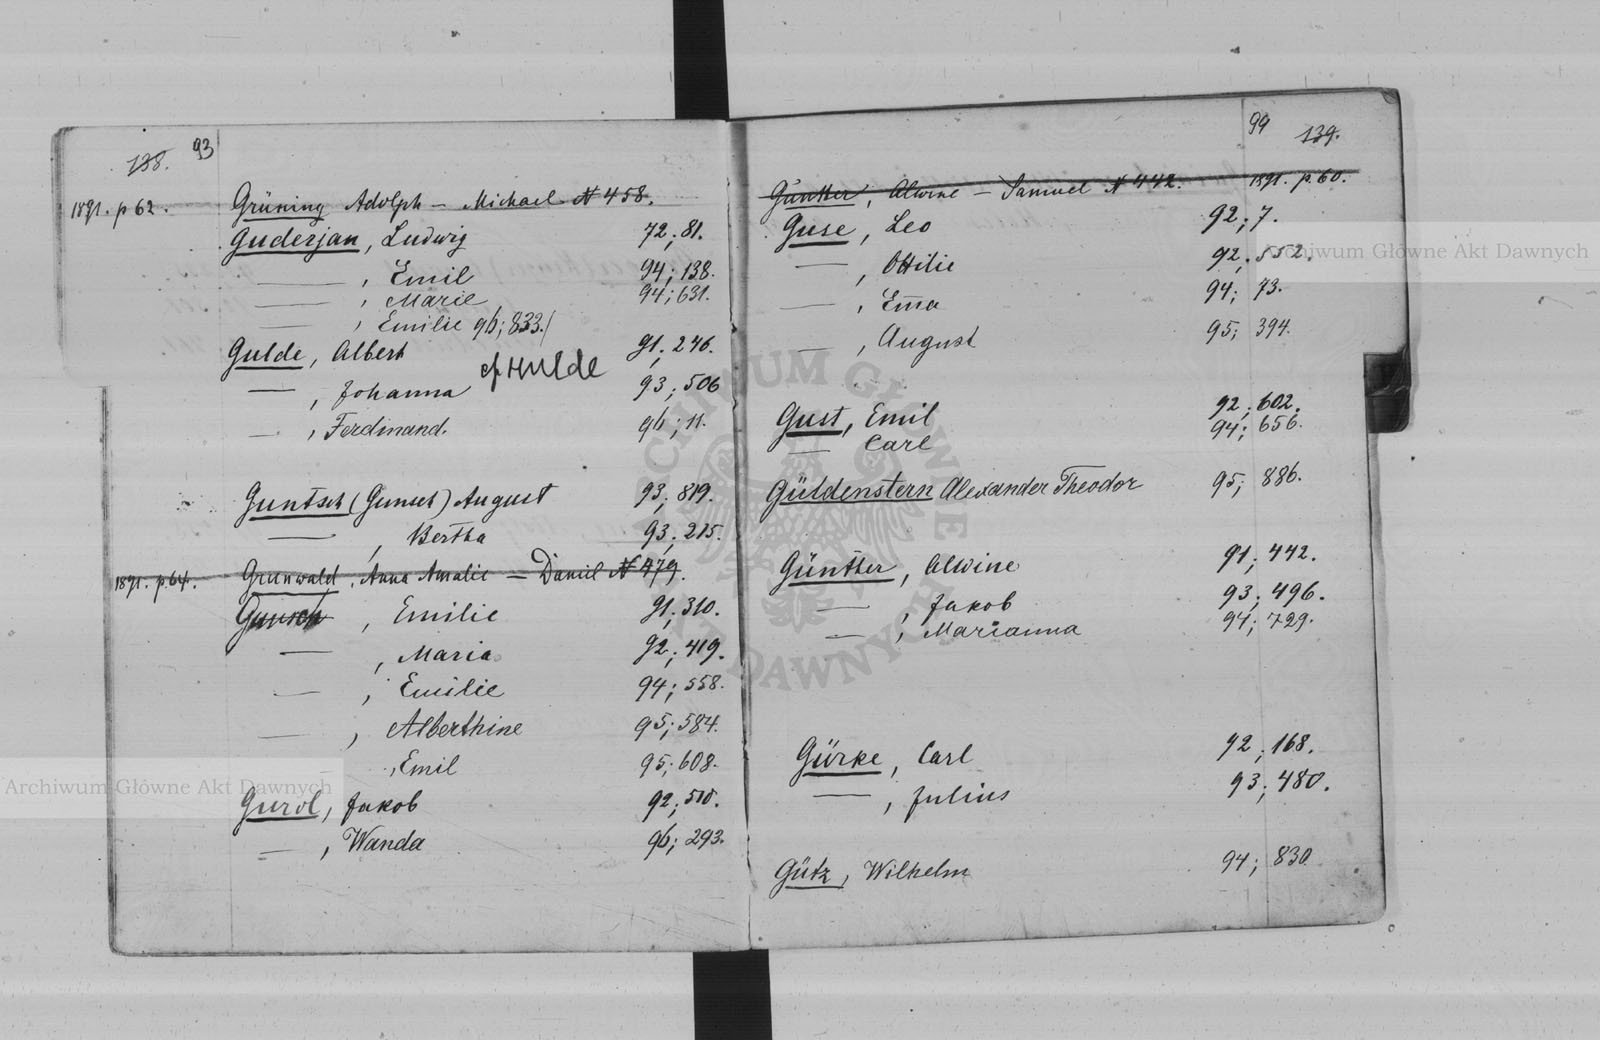 138. 93
1891. p 62. Grüning Adolph - Michael N 458.
Guderjan, Ludwig 72; 81.
—, Emil 94; 138.
—, Marie 94; 631.
—, Emilie 96; 833.
Gulde, Albert 91; 246.
cf Hulde
—, Johanna 93; 506
—, Ferdinand. 96; 11.
Guntsch (Gunsch) August 93; 819.
—, Bertha 93; 215.
1891. p. 64. Grunwald, Anna Amalie - Daniel N 479.
Gunsch, Emilie 91; 310.
—, Maria 92; 419.
—, Emilie 94; 558.
—, Alberthine 95; 584.
—, Emil 95; 608.
Gurol, Jakob 92; 510.
—, Wanda 96; 293.
99 139.
Günther, Alwine - Samuel N 442. 1891. p. 60.
Guse, Leo 92; 7.
—, Ottilie 92; 552.
—, Em̄a 94; 73.
—, August 95; 394.
Gust, Emil 92; 602.
— Carl 94; 656.
Güldenstern Alexander Theodor 95; 886.
Günther, Alwine 91; 442.
—, Jakob 93; 496.
—, Marianna 94; 729.
Gürke, Carl 92; 168.
—, Julius 93; 480.
Gütz, Wilhelm 94; 830
Archiwum Główne Akt Dawnych
Archiwum Główne Akt Dawnych
ARCHIWUM GŁÓWNE AKT DAWNYCH